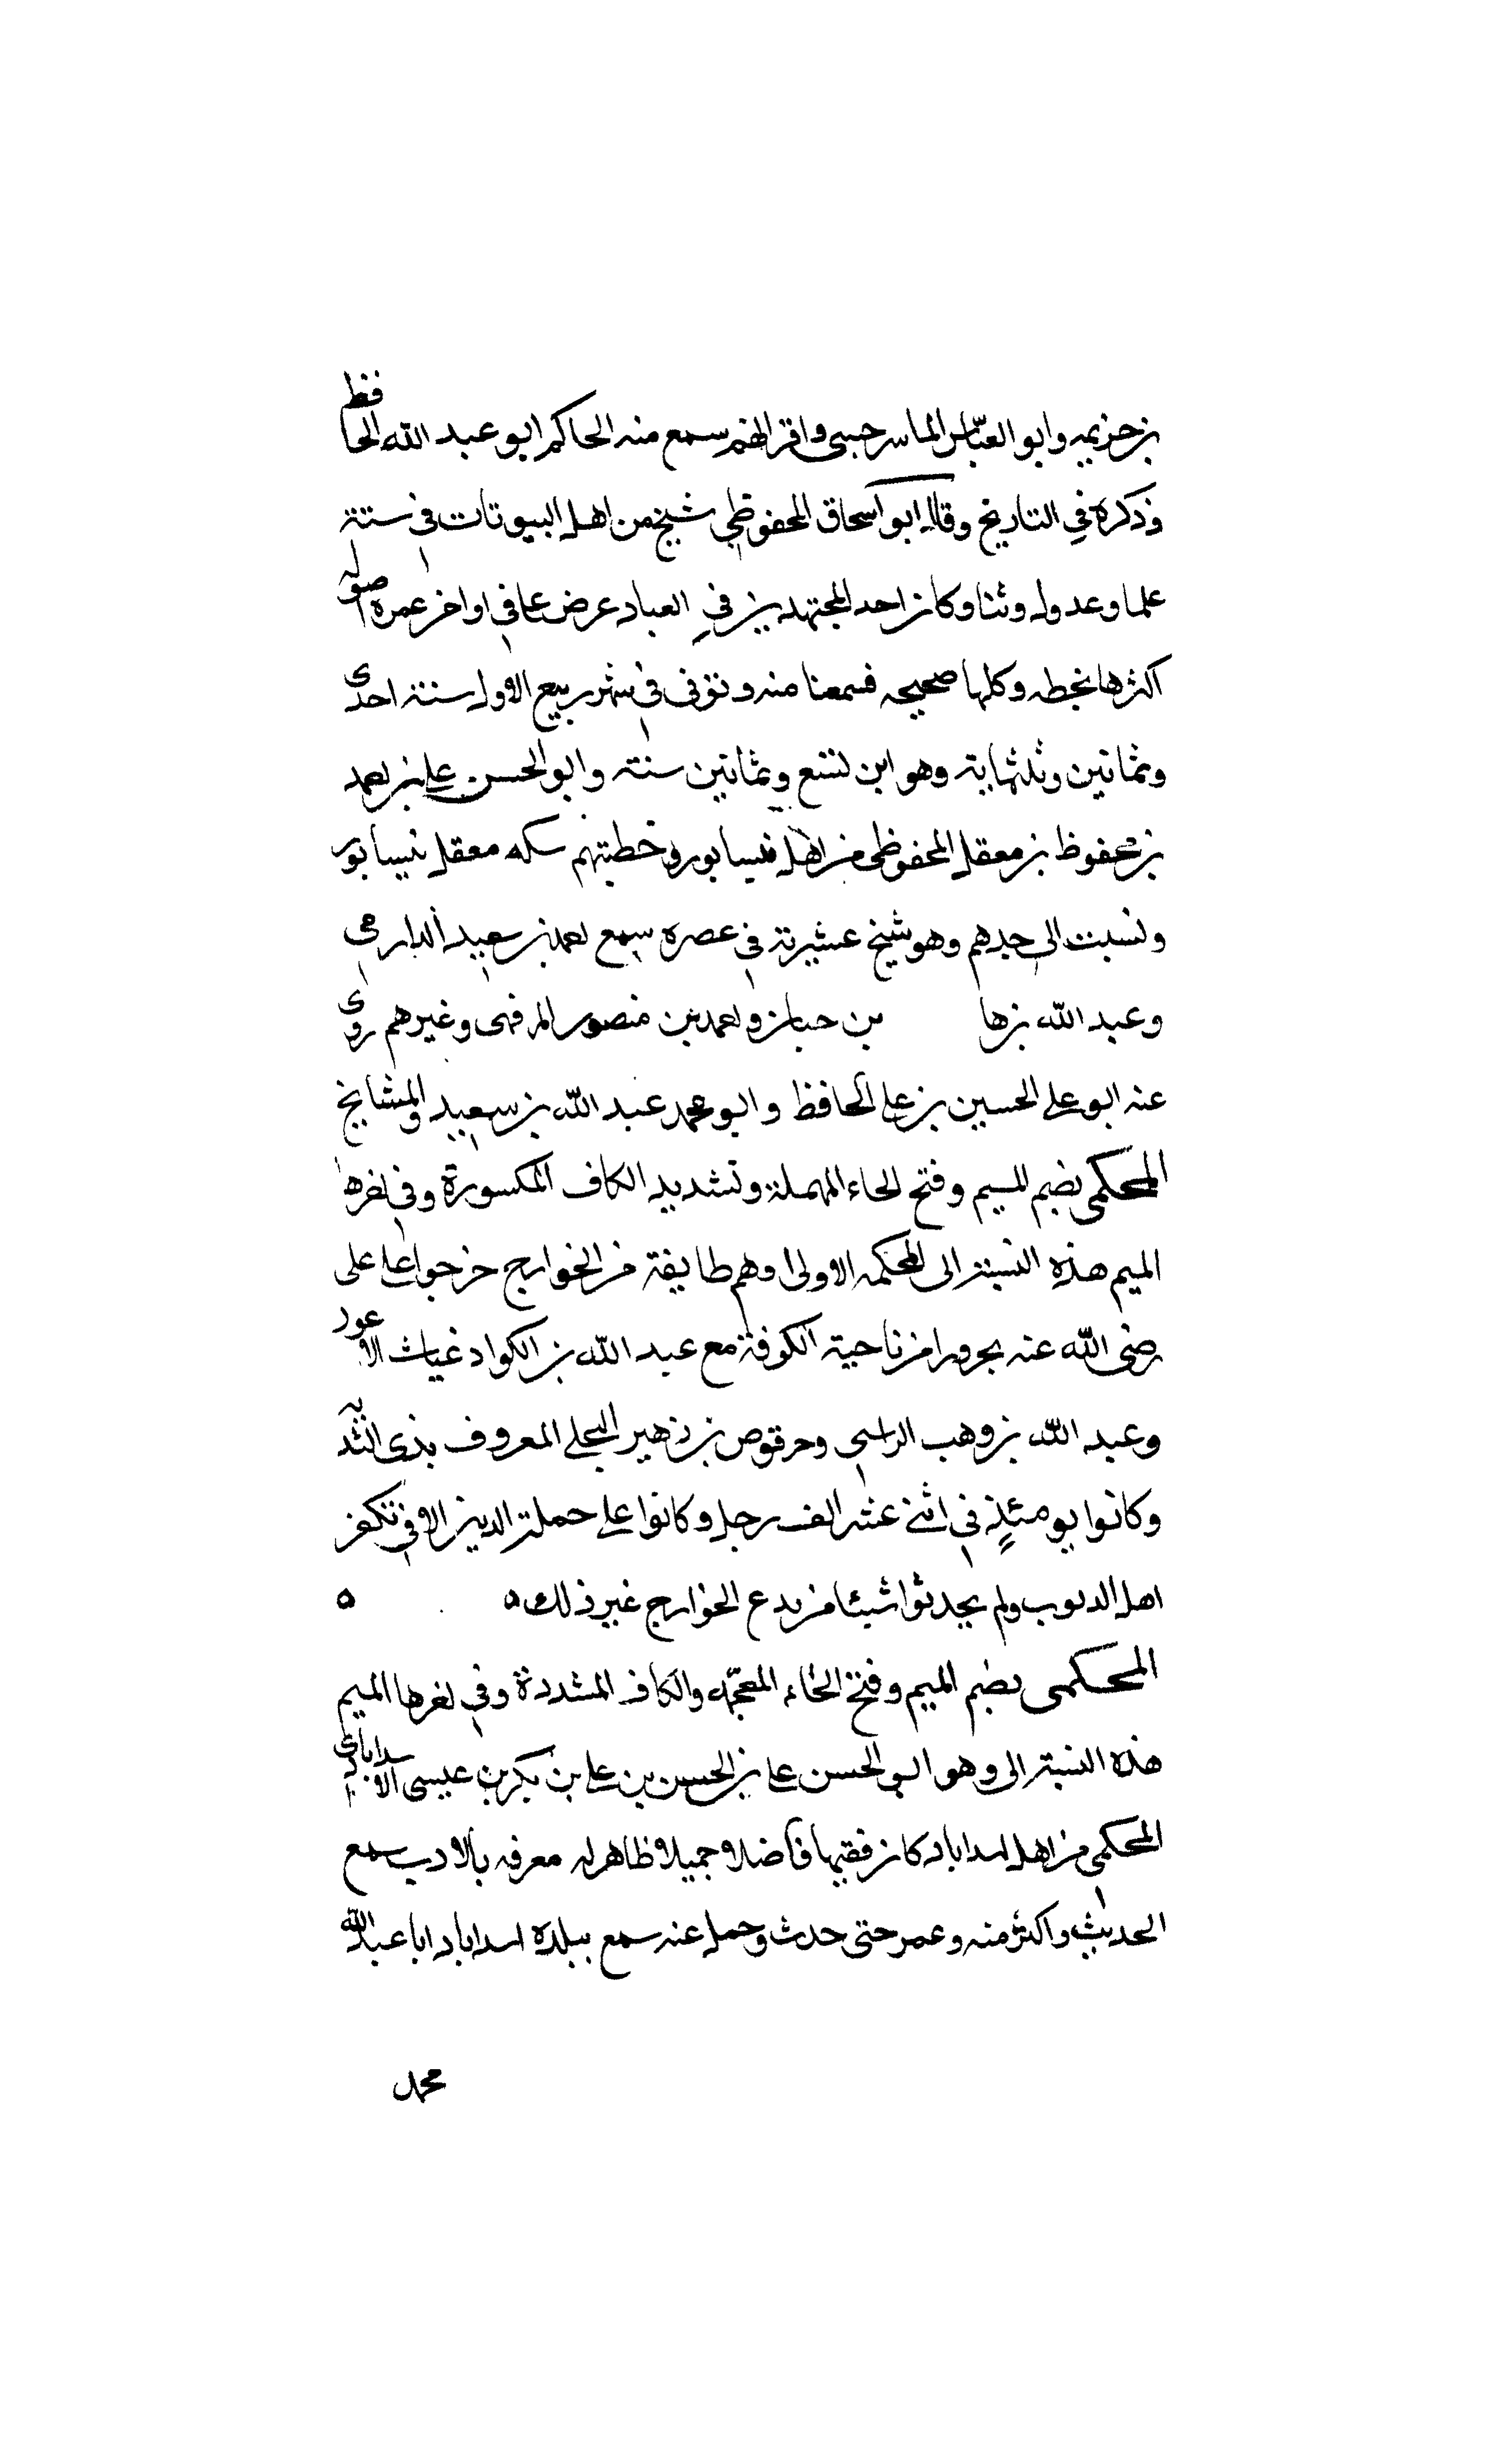 بن خزيمه وابو العباس الماسرجسى واقرانهم سمع منه الحاكم ابو عبد الله الحافظ
وذكره في التاريخ وقال ابو اسحاق المحفوظي شيخ من اهل البيوتات في سنته
علما وعدوله وثنا وكان احد المجتهدين في العباد عرض علي في اواخر عمره اصوله
اكثرها بخطه وكلها صحيحه فسمعنا منه وتوفى في شهر ربيع الاول سنة احدى
وثمانين وثلثماية وهو ابن تسع وثمانين سنة وابو الحسن علي بن احمد
بن محفوظ بن معقل المحفوظى من اهل نيسابور وخطتهم سكه معقل نيسابور
ونسبت الى جدهم وهو شيخ عشيرته في عصره سمع احمد بن سعيد الدارمى
وعبد الله بن ها من حيان واحمد بن منصور وغيرهم روى
عنه ابو علي الحسين بن علي الحافظ وابو محمد عبد الله بن سعيد والمشايخ
المحكمى بضم الميم وفتح الحاء المهملة وتشديد الكاف المكسورة وفي اخرها
الميم هذه النسبة الى المحكمه الاولى وهم طايفة من الخوارج خرجوا على علي
رضى الله عنه بحرورا من ناحية الكوفة مع عبد الله بن الكوا وغياث الاعور
وعبد الله بن وهب الراسبى وحرقوص بن زهير البجلي المعروف بذى الثديه
وكانوا يومئذ في اثنى عشر الف رجل وكانوا على جملة الدين الا في تكفير
اهل الذنوب ولم يحدثوا شيئا من بدع الخوارج غير ذلك ه ه
المحكمى بضم الميم وفتح الخاء المعجمه والكاف المشددة وفي اخرها الميم
هذه النسبة الى وهو ابو الحسن علي بن الحسن بن علي بن بكر بن عيسى الاسداباذى
المحكمى من اهل اسداباد كان فقيها فاضلا جميلا ظاهر له معرفه بالادب سمع
الحديث واكثر منه وعمر حتى حدث وحمل عنه سمع ببلده اسداباد ابا عبد الله
محمد